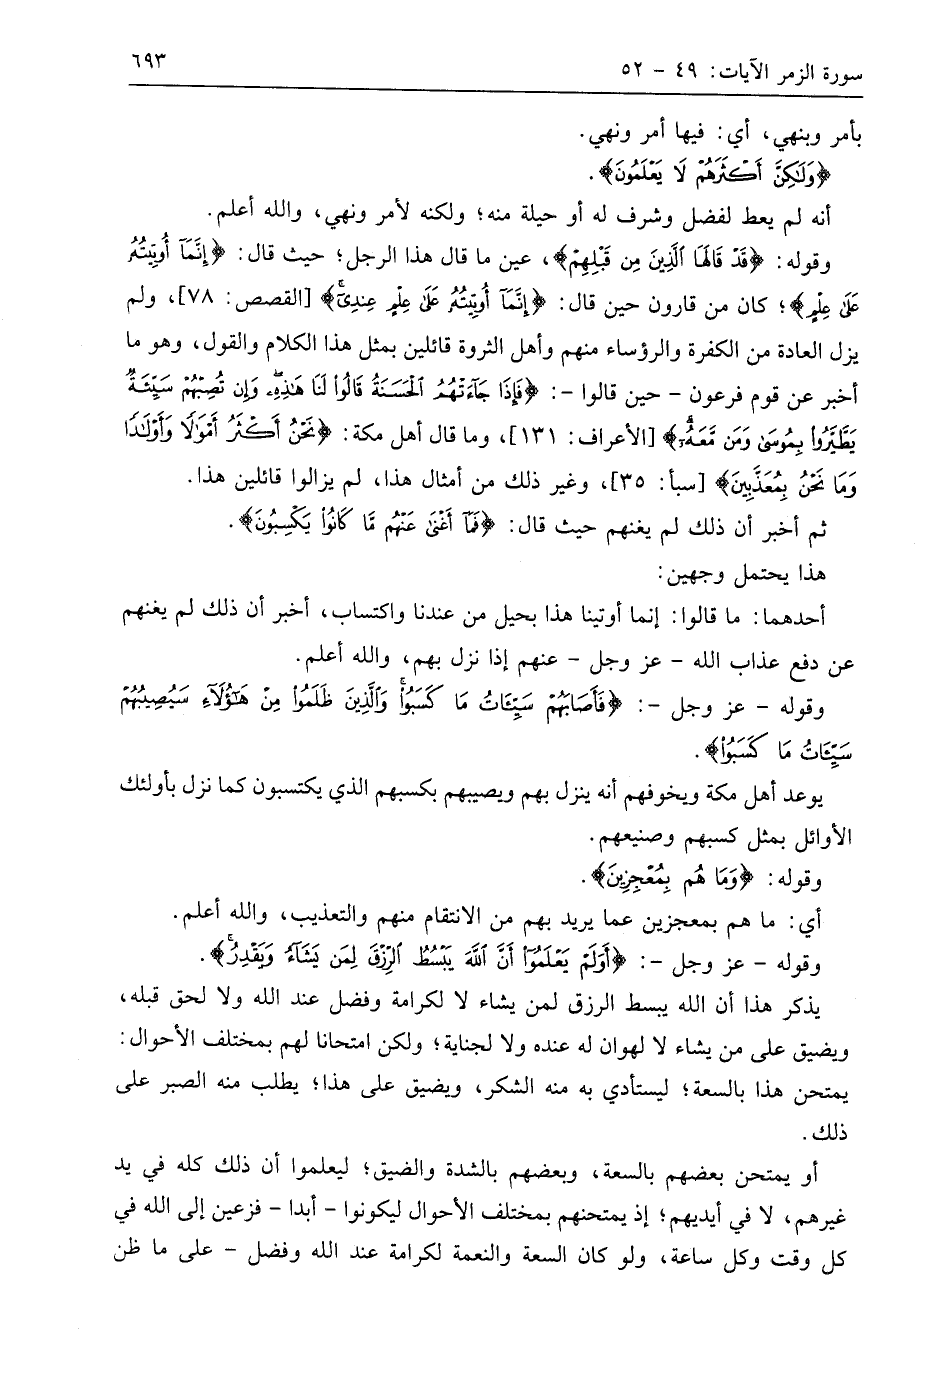 سورة الزمر الآيات: ٤٩ - ٥٢ ٦٩٣
بأمر وبنهي، أي: فيها أمر ونهي.
﴿وَلَٰكِنَّ أَكْثَرَهُمْ لَا يَعْلَمُونَ﴾.
أنه لم يعط لفضل وشرف له أو حيلة منه؛ ولكنه لأمر ونهي، والله أعلم.
وقوله: ﴿قَدْ قَالَهَا ٱلَّذِينَ مِن قَبْلِهِمْ﴾، عين ما قال هذا الرجل؛ حيث قال: ﴿إِنَّمَآ أُوتِيتُهُۥ
عَلَىٰ عِلْمٍۭ﴾؛ كان من قارون حين قال: ﴿إِنَّمَآ أُوتِيتُهُۥ عَلَىٰ عِلْمٍ عِندِىٓۚ﴾ [القصص: ٧٨]، ولم
يزل العادة من الكفرة والرؤساء منهم وأهل الثروة قائلين بمثل هذا الكلام والقول، وهو ما
أخبر عن قوم فرعون - حين قالوا -: ﴿فَإِذَا جَآءَتْهُمُ ٱلْحَسَنَةُ قَالُوا۟ لَنَا هَٰذِهِۦۖ وَإِن تُصِبْهُمْ سَيِّئَةٌ
يَطَّيَّرُوا۟ بِمُوسَىٰ وَمَن مَّعَهُۥٓۗ﴾ [الأعراف: ١٣١]، وما قال أهل مكة: ﴿نَحْنُ أَكْثَرُ أَمْوَٰلًا وَأَوْلَٰدًا
وَمَا نَحْنُ بِمُعَذَّبِينَ﴾ [سبأ: ٣٥]، وغير ذلك من أمثال هذا، لم يزالوا قائلين هذا.
ثم أخبر أن ذلك لم يغنهم حيث قال: ﴿فَمَآ أَغْنَىٰ عَنْهُم مَّا كَانُوا۟ يَكْسِبُونَ﴾.
هذا يحتمل وجهين:
أحدهما: ما قالوا: إنما أوتينا هذا بحيل من عندنا واكتساب، أخبر أن ذلك لم يغنهم
عن دفع عذاب الله - عز وجل - عنهم إذا نزل بهم، والله أعلم.
وقوله - عز وجل -: ﴿فَأَصَابَهُمْ سَيِّـَٔاتُ مَا كَسَبُوا۟ۚ وَٱلَّذِينَ ظَلَمُوا۟ مِنْ هَٰٓؤُلَآءِ سَيُصِيبُهُمْ
سَيِّـَٔاتُ مَا كَسَبُوا۟﴾.
يوعد أهل مكة ويخوفهم أنه ينزل بهم ويصيبهم بكسبهم الذي يكتسبون كما نزل بأولئك
الأوائل بمثل كسبهم وصنيعهم.
وقوله: ﴿وَمَا هُم بِمُعْجِزِينَ﴾.
أي: ما هم بمعجزين عما يريد بهم من الانتقام منهم والتعذيب، والله أعلم.
وقوله - عز وجل -: ﴿أَوَلَمْ يَعْلَمُوٓا۟ أَنَّ ٱللَّهَ يَبْسُطُ ٱلرِّزْقَ لِمَن يَشَآءُ وَيَقْدِرُۚ﴾.
يذكر هذا أن الله يبسط الرزق لمن يشاء لا لكرامة وفضل عند الله ولا لحق قبله،
ويضيق على من يشاء لا لهوان له عنده ولا لجناية؛ ولكن امتحانا لهم بمختلف الأحوال:
يمتحن هذا بالسعة؛ ليستأدي به منه الشكر، ويضيق على هذا؛ يطلب منه الصبر على
ذلك.
أو يمتحن بعضهم بالسعة، وبعضهم بالشدة والضيق؛ ليعلموا أن ذلك كله في يد
غيرهم، لا في أيديهم؛ إذ يمتحنهم بمختلف الأحوال ليكونوا - أبدا - فزعين إلى الله في
كل وقت وكل ساعة، ولو كان السعة والنعمة لكرامة عند الله وفضل - على ما ظن